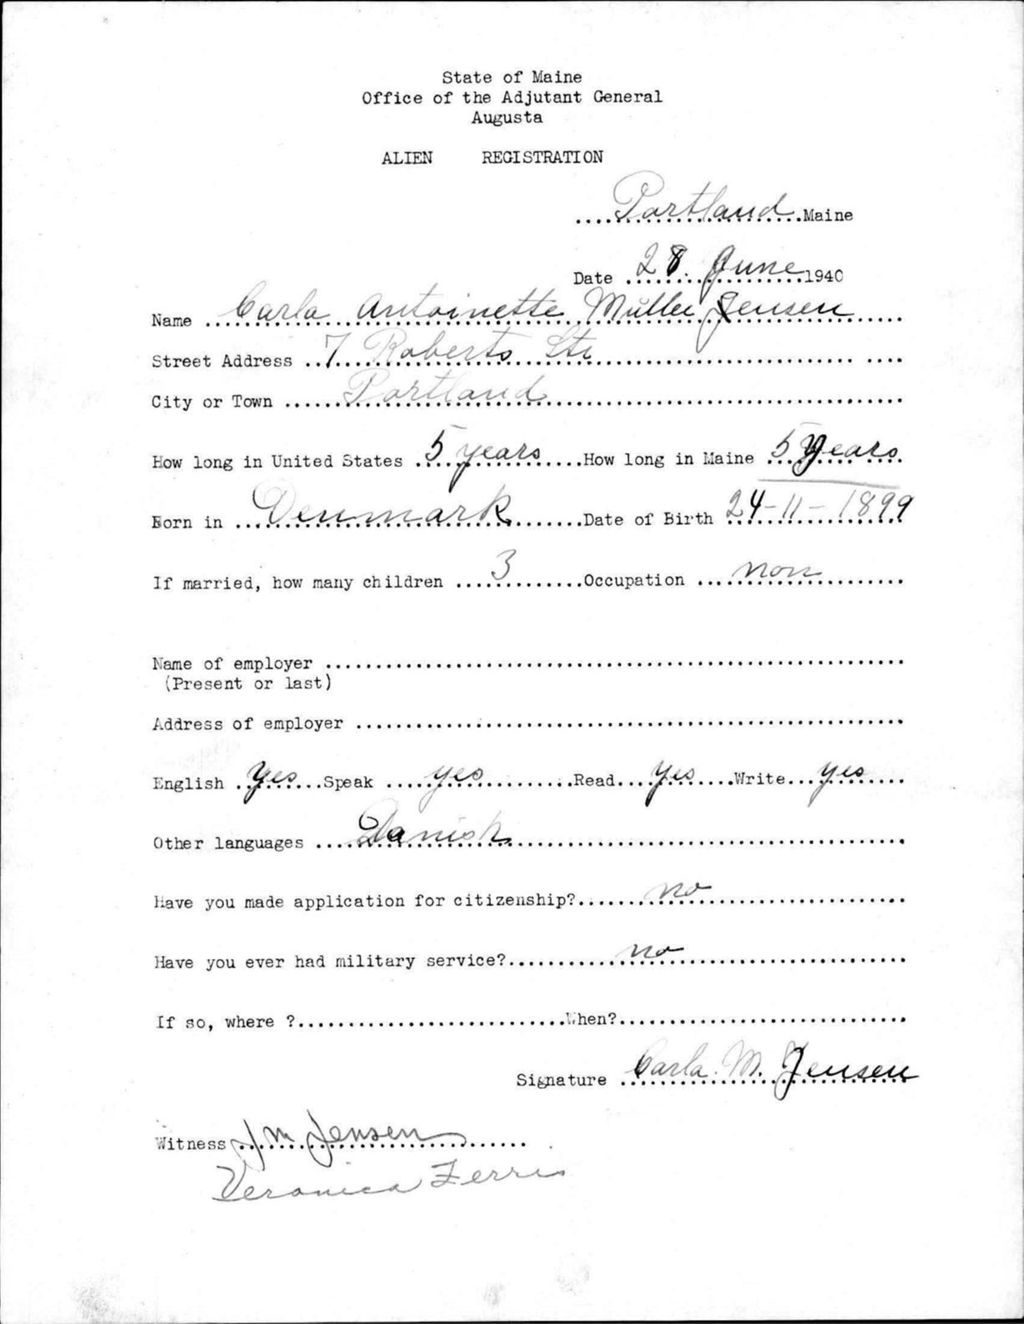 State of Maine
Office of the Adjutant General
Augusta
ALIEN REGISTRATION
....Portland....Maine
Date ..28. June....1940
Name ....Carla Antoinette Müller Jensen....
Street Address ..7 Roberts St.....
City or Town ....Portland....
How long in United States ..5 years....How long in Maine ..5 years..
Born in ....Denmark....Date of Birth 24-11-1899
If married, how many children ....3....Occupation ...non....
Name of employer ....
(Present or last)
Address of employer ....
English .Yes....Speak ....yes....Read...Yes....Write...yes....
Other languages ....Danish....
Have you made application for citizenship?....no....
Have you ever had military service?....no....
If so, where ?....When?....
Signature ..Carla. M. Jensen
Witness..J M Jensen....
Veronica Ferris